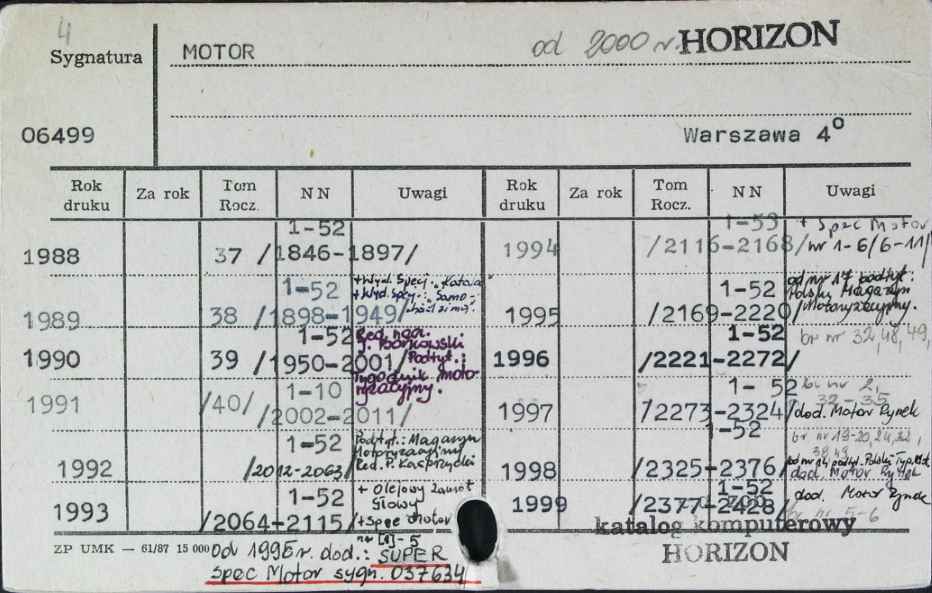 4
Sygnatura
MOTOR
od 2000 r. HORIZON
06499
Warszawa 4°
Rok druku | Za rok | Tom Rocz. | NN | Uwagi | Rok druku | Za rok | Tom Rocz. | NN | Uwagi
1-52
1988 37 /1846-1897/
1-52 +Wyd. Specj.:
+Wyd. Spcj.: Samo-
1989 38 /1898-1949/
1-52 Red. nacz.
Borkowski
1990 39 /1950-2001/ Podtyt.:
Tygodnik Moto-
ryzacyjny.
1-10
1991 /40/
/2002-2011/
1-52 Podtyt.: Magazyn
Motoryzacyjny
1992 /2012-2063/ Red. P. Kasprzycki
1-52 + Olejowy zawrót
Głowy
1993 /2064-2115/ +Spec Motor
nr [1]-5
1-53 + Spec Motor
1994 /2116-2168/ nr 1-6/6-11/
1-52 od nr 17 podtyt.:
Polski Magazyn
1995 /2169-2220/ Motoryzacyjny.
1-52 br nr 32,48,49,
1996 /2221-2272/
1-52 br nr 2,
32-35
1997 /2273-2324/ dod. Motor Rynek
1-52 br nr 19-20,24,32,
38,49
1998 /2325-2376/
dod. Motor Rynek
1-52 dod. Motor Rynek
1999 /2377-2428/
br nr 5-6
katalog komputerowy
HORIZON
ZP UMK — 61/87 15 000
od 1995 r. dod.: SUPER
Spec Motor sygn. 037634